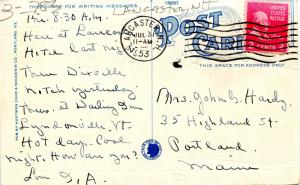 THIS SPACE FOR WRITING MESSAGES
Fri 8:30 A.M.
Here at Lancaster
Hotel last nite
From Dixville
Notch yesterday
Tues. at Darling Inn
Lyndonville Vt
Hot days. Cool
night. How are you?
Lou & A.
LANCASTER
JUL 31
11-AM
1953
POST CARD
THIS SPACE FOR ADDRESS
UNITED STATES POSTAGE
2 CENTS 2
Mrs. John B. Hardy
35 Highland St.
Portland
Maine